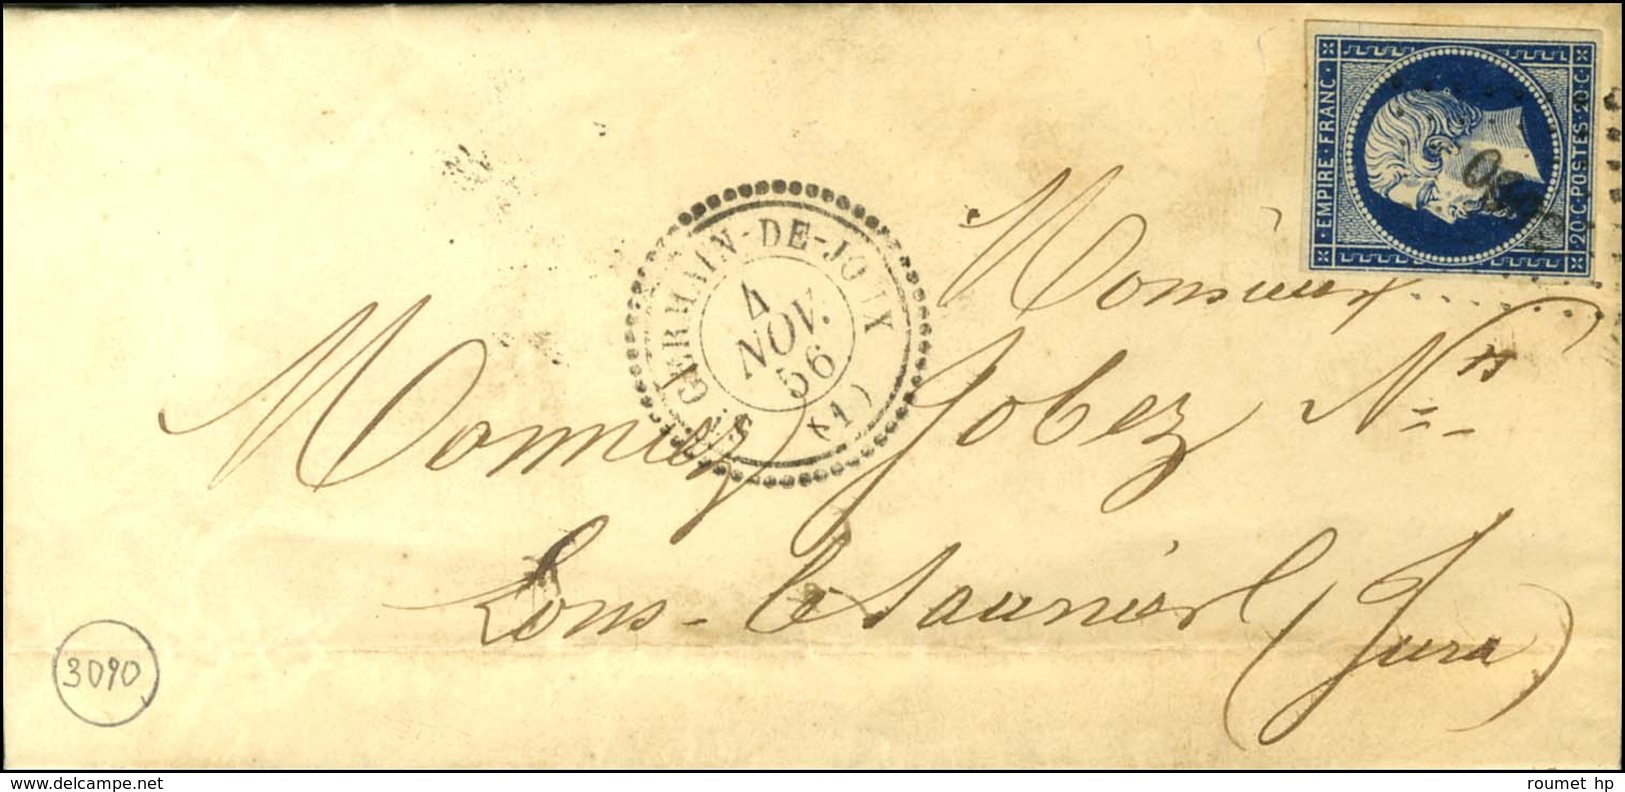 EMPIRE·FRANC·
20·C·POSTES·20·C
3090
ST GERMAIN-DE-JOUX
4
NOV.
56
(1)
Monsieur
Monnier Jobez Nts
Lons-le Saunier (Jura)
3090
roumet hp